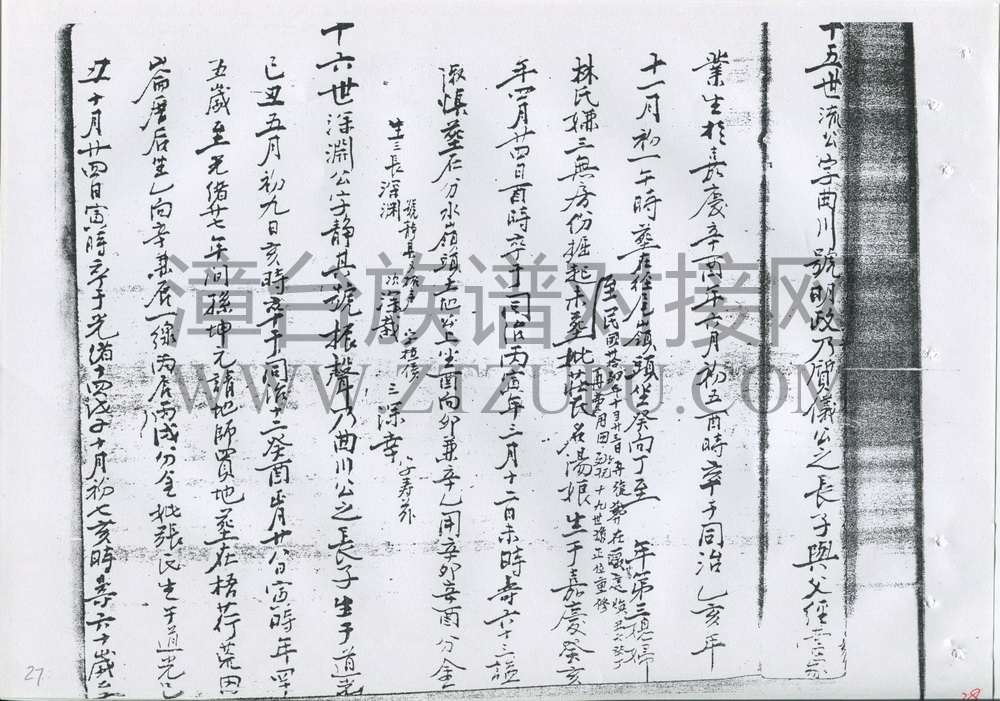 十五世流公字曲川號明政乃質儀公之長子與父經營家
業生於嘉慶辛酉年六月初五酉時卒于同治乙亥年
十一月初一午時塟在徑尾嶺頭坐癸向丁至 年第三媳婦
至民國廿四年十月廿三日再從葬在
再費用回 十九世孫正位重修
林氏嫌三無房份掘起未塟妣莊氏名湯娘生于嘉慶癸亥
年四月廿四日酉時卒于同治丙寅年三月十二日未時壽六十三謚
淑慎塟石分水嶺頭土地公上坐酉向卯兼辛乙用辛卯辛酉分金
生三長深淵 號靜其 次深裁 三深幸 字壽
十六世深淵公字靜其號振聲乃曲川公之長子生于道光
己丑五月初九日亥時卒于同治十二癸酉正月廿八日寅時年四十
五歲至光緒廿七年间孫坤元請地師買地塟在梧荇荒田
崙厝后坐乙向辛兼辰一線丙辰丙戌分金妣張氏生于道光己
丑十月廿四日寅時卒于光緒十四戊子十月初七亥時享六十歲至
漳台族谱对接网
WWW.ZTZUPU.COM
27
28